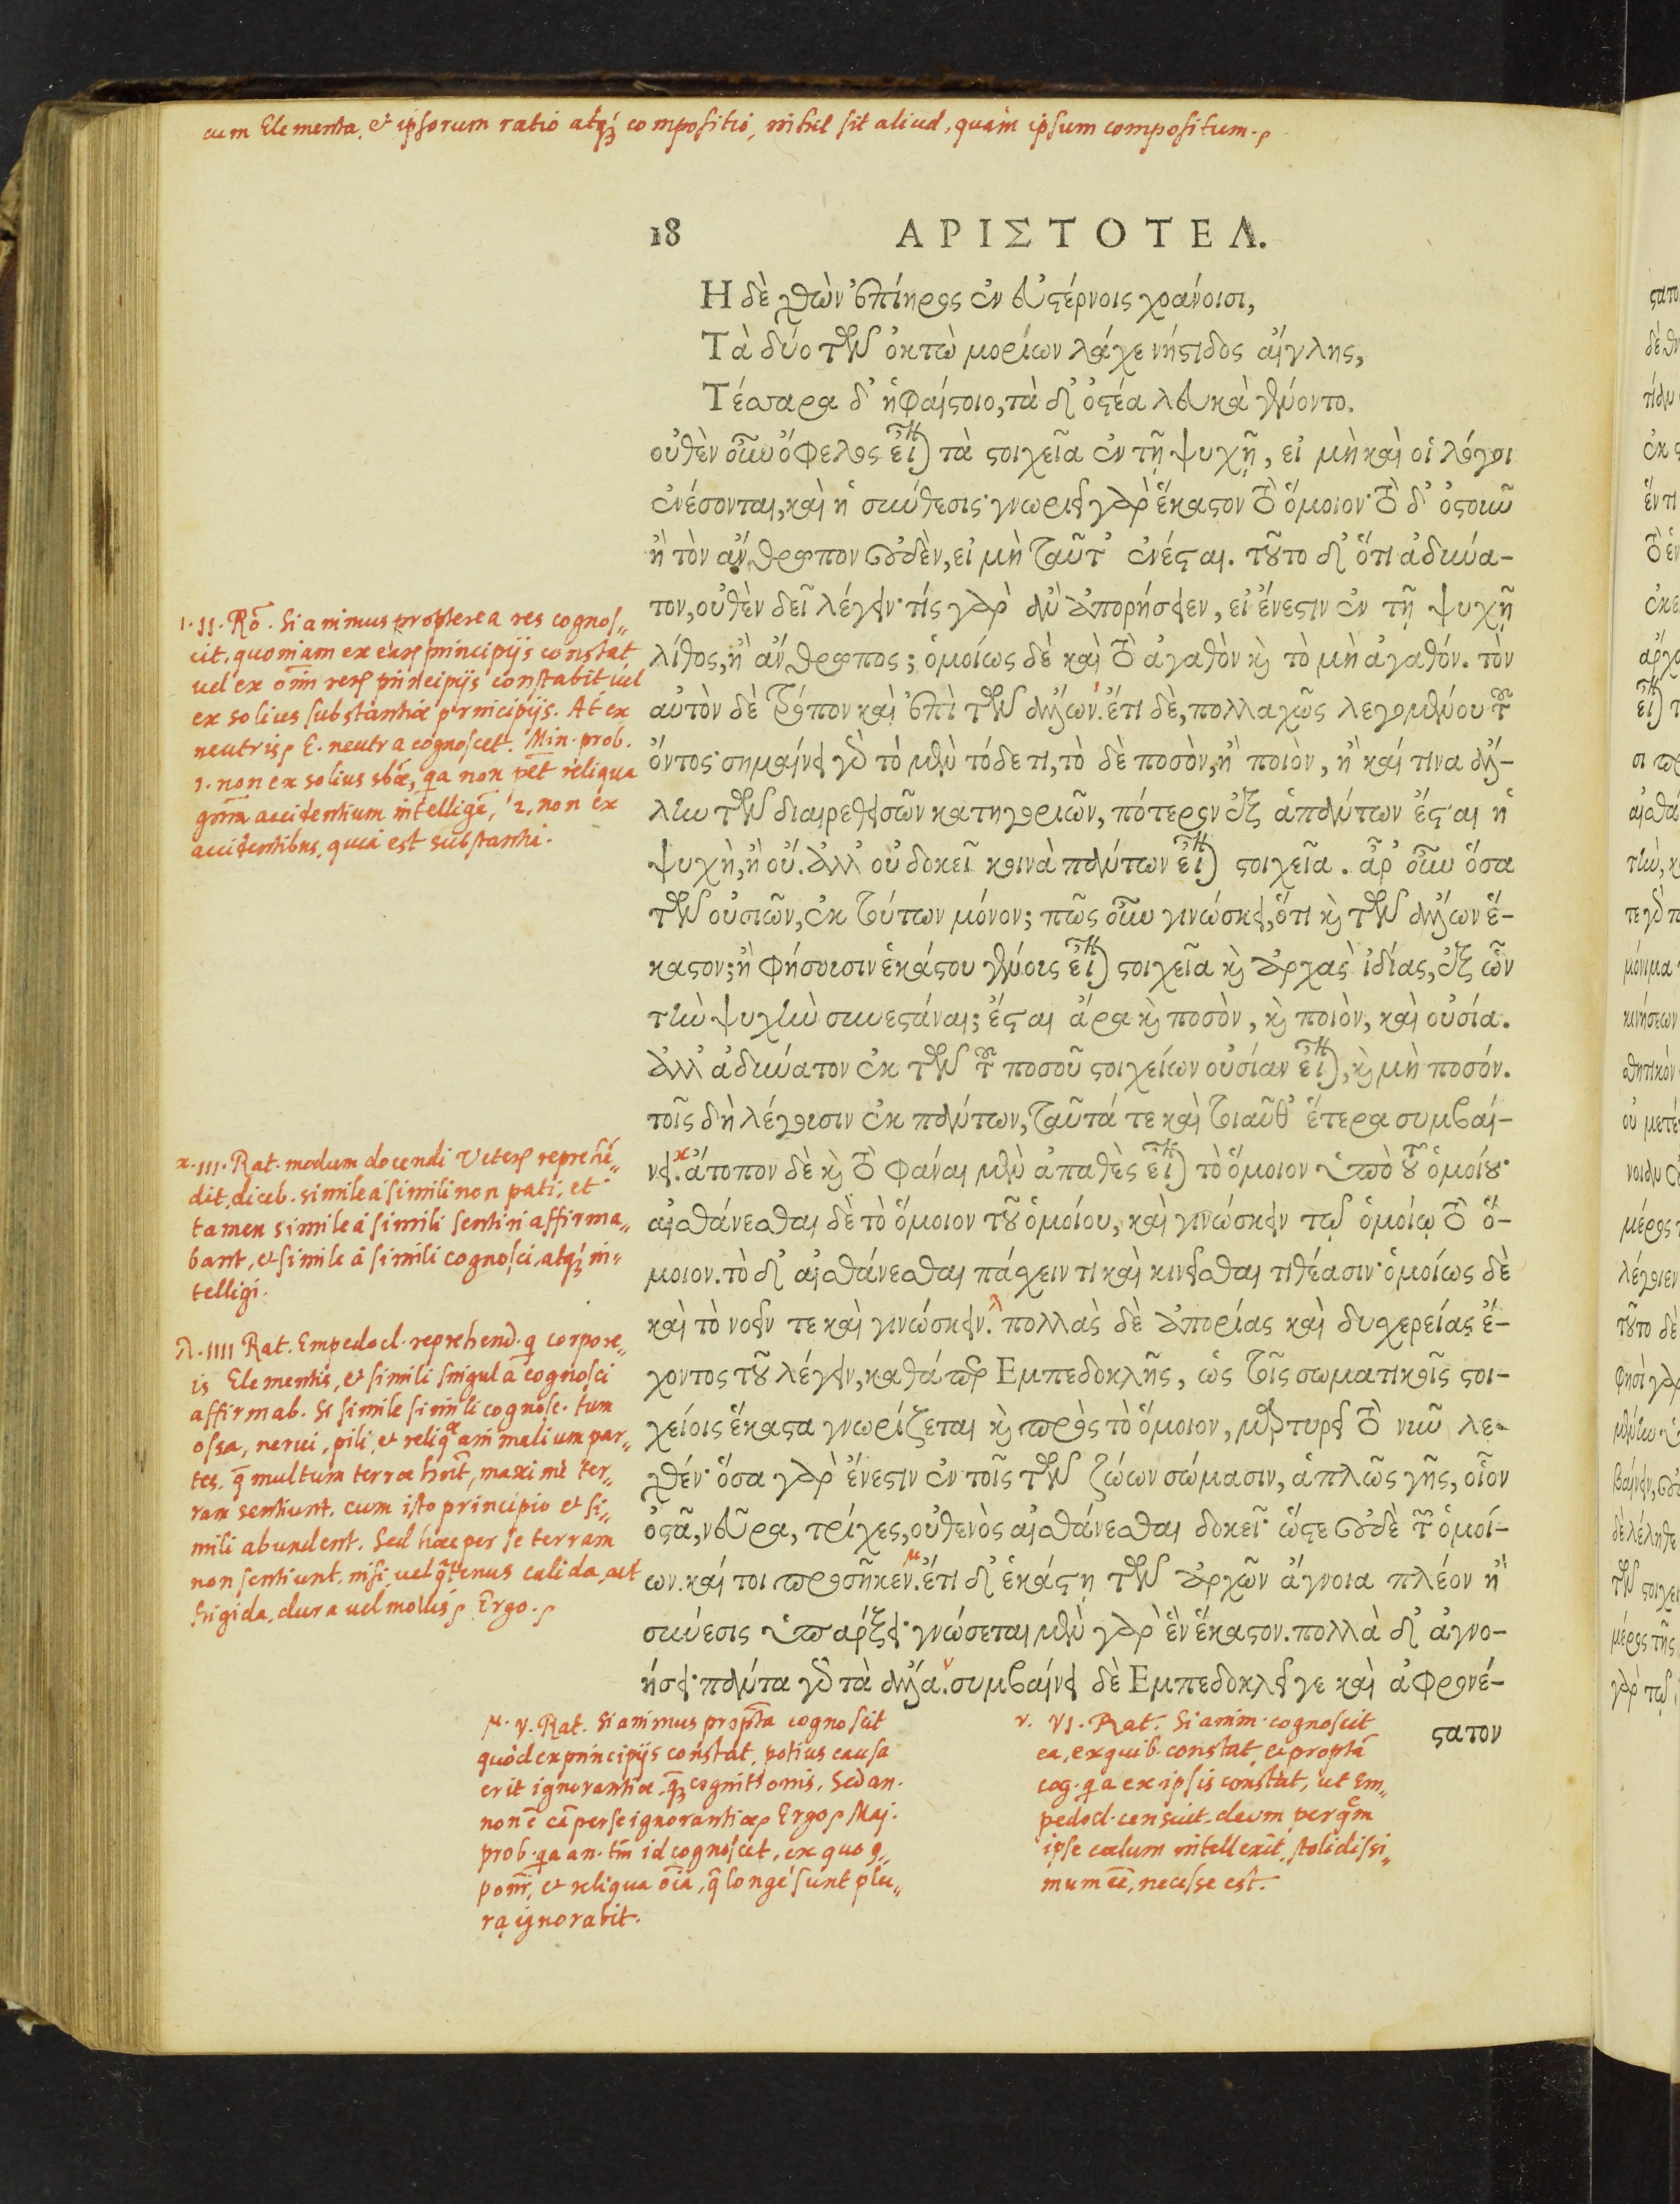 cum Elementa, et ipsorum ratio atq; compositio, nihil sit aliud, quàm ipsum compositum.
18 ΑΡΙΣΤΟΤΕΛ.
Η δὲ χθὼν ἐπίηρος ἐν εὐςέρνοις χοάνοισι,
Τὰ δύο τῶν ὀκτὼ μορίων λάχε νήςιδος αἴγλης,
Τέσσαρα δ᾽ ἡφαίςοιο, τὰ δ᾽ ὀςέα λευκὰ γένοντο.
οὐθὲν οὖν ὄφελος εἶναι τὰ ςοιχεῖα ἐν τῇ ψυχῇ, εἰ μὴ καὶ οἱ λόγοι
ἐνέσονται, καὶ ἡ σύνθεσις· γνωριεῖ γὰρ ἕκαςον τὸ ὅμοιον· τὸ δ᾽ ὀςοῦν
ἢ τὸν ἄνθρωπον οὐδὲν, εἰ μὴ ταῦτ᾽ ἐνέςαι. τοῦτο δ᾽ ὅτι ἀδύνα-
τον, οὐθὲν δεῖ λέγειν· τίς γὰρ ἂν ἀπορήσειεν, εἰ ἔνεςιν ἐν τῇ ψυχῇ
λίθος, ἢ ἄνθρωπος; ὁμοίως δὲ καὶ τὸ ἀγαθὸν καὶ τὸ μὴ ἀγαθόν. τὸν
αὐτὸν δὲ τρόπον καὶ ἐπὶ τῶν ἄλλων. ἔτι δὲ, πολλαχῶς λεγομένου τοῦ
ὄντος· σημαίνει γὰρ τὸ μὲν τόδε τι, τὸ δὲ ποσὸν, ἢ ποιὸν, ἢ καί τινα ἄλ-
λην τῶν διαιρεθεισῶν κατηγοριῶν, πότερον ἐξ ἁπάντων ἔςαι ἡ
ψυχὴ, ἢ οὔ. ἀλλ᾽ οὐ δοκεῖ κοινὰ πάντων εἶναι ςοιχεῖα. ἆρ᾽ οὖν ὅσα
τῶν οὐσιῶν, ἐκ τούτων μόνον; πῶς οὖν γινώσκει, ὅτι καὶ τῶν ἄλλων ἕ-
καςον; ἢ φήσουσιν ἑκάςου γένους εἶναι ςοιχεῖα καὶ ἀρχὰς ἰδίας, ἐξ ὧν
τὴν ψυχὴν συνεςάναι; ἔςαι ἄρα καὶ ποσὸν, καὶ ποιὸν, καὶ οὐσία.
ἀλλ᾽ ἀδύνατον ἐκ τῶν τοῦ ποσοῦ ςοιχείων οὐσίαν εἶναι, καὶ μὴ ποσόν.
τοῖς δὴ λέγουσιν ἐκ πάντων, ταῦτά τε καὶ τοιαῦθ᾽ ἕτερα συμβαί-
νει. ἄτοπον δὲ καὶ τὸ φάναι μὲν ἀπαθὲς εἶναι τὸ ὅμοιον ὑπὸ τοῦ ὁμοίου·
αἰσθάνεσθαι δὲ τὸ ὅμοιον τοῦ ὁμοίου, καὶ γινώσκειν τῷ ὁμοίῳ τὸ ὅ-
μοιον. τὸ δ᾽ αἰσθάνεσθαι πάσχειν τι καὶ κινεῖσθαι τιθέασιν· ὁμοίως δὲ
καὶ τὸ νοεῖν τε καὶ γινώσκειν. πολλὰς δὲ ἀπορίας καὶ δυχερείας ἔ-
χοντος τοῦ λέγειν, καθάπερ Εμπεδοκλῆς, ὡς τοῖς σωματικοῖς ςοι-
χείοις ἕκαςα γνωρίζεται καὶ πρὸς τὸ ὅμοιον, μαρτυρεῖ τὸ νῦν λε-
χθέν· ὅσα γὰρ ἔνεςιν ἐν τοῖς τῶν ζώων σώμασιν, ἁπλῶς γῆς, οἷον
ὀςᾶ, νεῦρα, τρίχες, οὐθενὸς αἰσθάνεσθαι δοκεῖ· ὥςε οὐδὲ τοῦ ὁμοί-
ων. καί τοι προσῆκεν. ἔτι δ᾽ ἑκάςῃ τῶν ἀρχῶν ἄγνοια πλέον ἢ
σύνεσις ὑπάρξει· γνώσεται μὲν γὰρ ἓν ἕκαςον. πολλὰ δ᾽ ἀγνο-
ήσει· πάντα γὰρ τὰ ἄλλα. συμβαίνει δὲ Εμπεδοκλεῖ γε καὶ ἀφρονέ-
ςατον
ι. II. Rō. Si animus propterea res cognos„
cit, quoniam ex earū principijs constat,
uel ex oīm rerū principijs constabit uel
ex solius substantiæ principijs. At ex
neutris, E. neutra cognoscet. Min. prob.
1. non ex solius sbæ, qa non pēt reliqua
accidentium intelligē, 2. non ex
accidentibus, quia est substantia.
κ. III. Rat. modum docendi Veterū reprehē„
dit, diceb. simile à simili non pati, et
tamen simile à simili sentiri affirma„
bant, et simile à simili cognosci, atq; in„
telligi.
λ. IIII Rat. Empedocl. reprehend. q corpore„
is Elementis, et simili singula cognosci
affirmab. Si simile simili cognosc. tum
ossa, nerui, pili, et reliqæ animalium par„
tes, q multum terræ hnt, maximè ter„
ram sentiunt, cum isto principio et si„
mili abundent. Sed hæc per se terram
non sentiunt, nisi uel qtenus calida, aut
frigida, dura uel mollis, Ergo.
μ. V. Rat. Si animus proptea cognoscit
quòd ex principijs constat, potius causa
erit ignorantiæ, q; cognitionis. Sed an.
non ē cā per se ignorantiæ, Ergo, Maj.
prob. qa an. tm id cognoscet, ex quo 9„
ponr, et reliqua oīa, q longè sunt plu„
ra, ignorabit.
ν. VI. Rat. Si anim. cognoscit
ea, ex quib. constat, et proptā
cog. qa ex ipsis constat, ut Em„
pedocl. censuit, deum, per qm
ipse cœlum intellexit, stolidissi„
mum eē, necesse est.